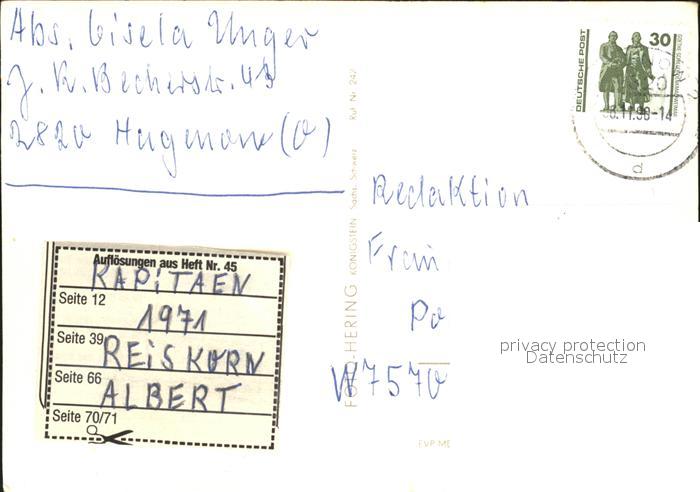 Abs. Gisela Unger
J. R. Becherstr. 43
2820 Hagenow (O)
DEUTSCHE POST
30
11.90-14
d
Redaktion
Frau
Po
W 7570
privacy protection
Datenschutz
FOTO-HERING KÖNIGSTEIN Sächs. Schweiz Ruf Nr. 247
EVP-ME
Auflösungen aus Heft Nr. 45
KAPITAEN
Seite 12
1971
Seite 39
REISKORN
Seite 66
ALBERT
Seite 70/71